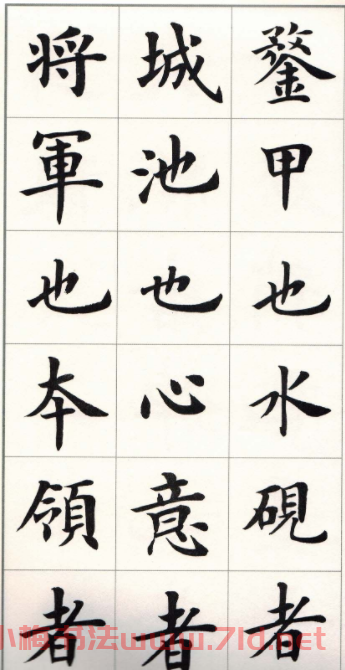 鍪甲也水硯者
城池也心意者
将軍也本領者
小梅书法www.7ld.net